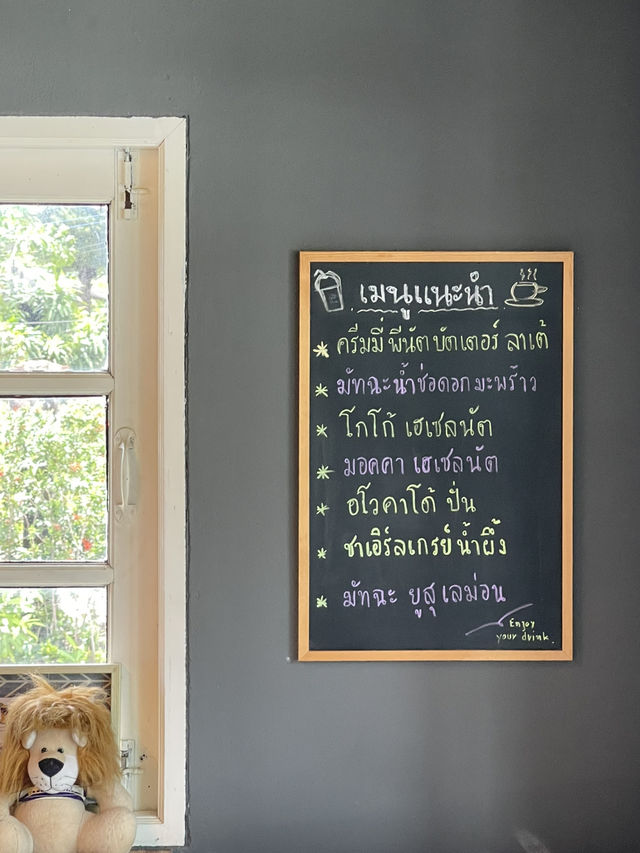 เมนูแนะนำ
* ครีมมี่ พีนัต บัตเตอร์ ลาเต้
* มัทฉะน้ำช่อดอกมะพร้าว
* โกโก้ เฮเซลนัต
* มอคคา เฮเซลนัต
* อโวคาโด้ ปั่น
* ชาเอิร์ลเกรย์ น้ำผึ้ง
* มัทฉะ ยูสุ เลม่อน
Enjoy
your drink.